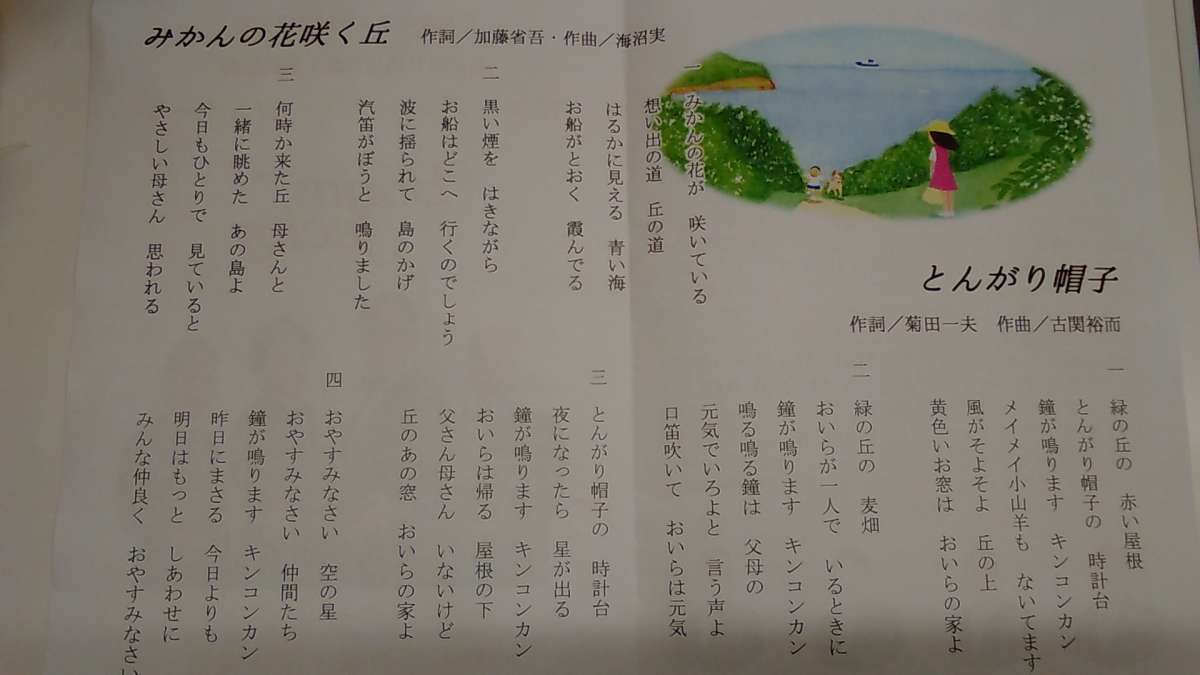 みかんの花咲く丘　作詞／加藤省吾・作曲／海沼実
一
みかんの花が　咲いている
想い出の道　丘の道
はるかに見える　青い海
お船がとおく　霞んでる
二
黒い煙を　はきながら
お船はどこへ　行くのでしょう
波に揺られて　島のかげ
汽笛がぼうと　鳴りました
三
何時か来た丘　母さんと
一緒に眺めた　あの島よ
今日もひとりで　見ていると
やさしい母さん　思われる
とんがり帽子
作詞／菊田一夫　作曲／古関裕而
一
緑の丘の　赤い屋根
とんがり帽子の　時計台
鐘が鳴ります　キンコンカン
メイメイ小山羊も　ないてます
風がそよそよ　丘の上
黄色いお窓は　おいらの家よ
二
緑の丘の　麦畑
おいらが一人で　いるときに
鐘が鳴ります　キンコンカン
鳴る鳴る鐘は　父母の
元気でいろよと　言う声よ
口笛吹いて　おいらは元気
三
とんがり帽子の　時計台
夜になったら　星が出る
鐘が鳴ります　キンコンカン
おいらは帰る　屋根の下
父さん母さん　いないけど
丘のあの窓　おいらの家よ
四
おやすみなさい　空の星
おやすみなさい　仲間たち
鐘が鳴ります　キンコンカン
昨日にまさる　今日よりも
明日はもっと　しあわせに
みんな仲良く　おやすみなさい